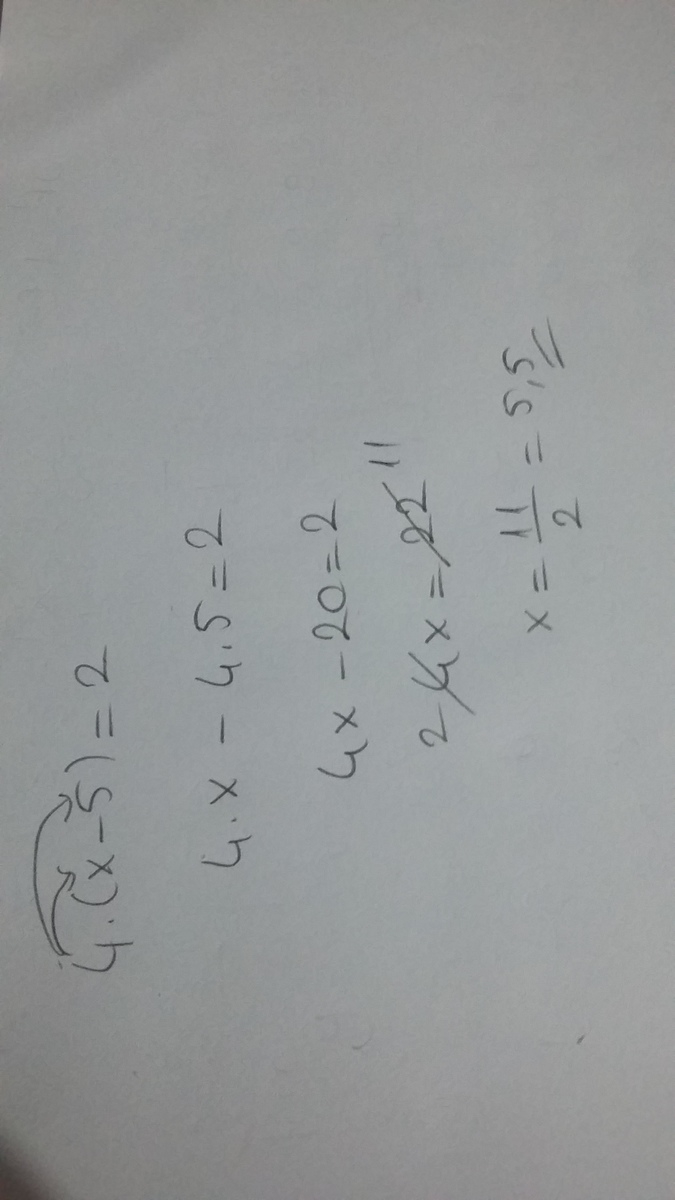 4.(x-5)=2
4.x - 4.5=2
4x-20=2
2 4x=22 11
x=11/2=5,5